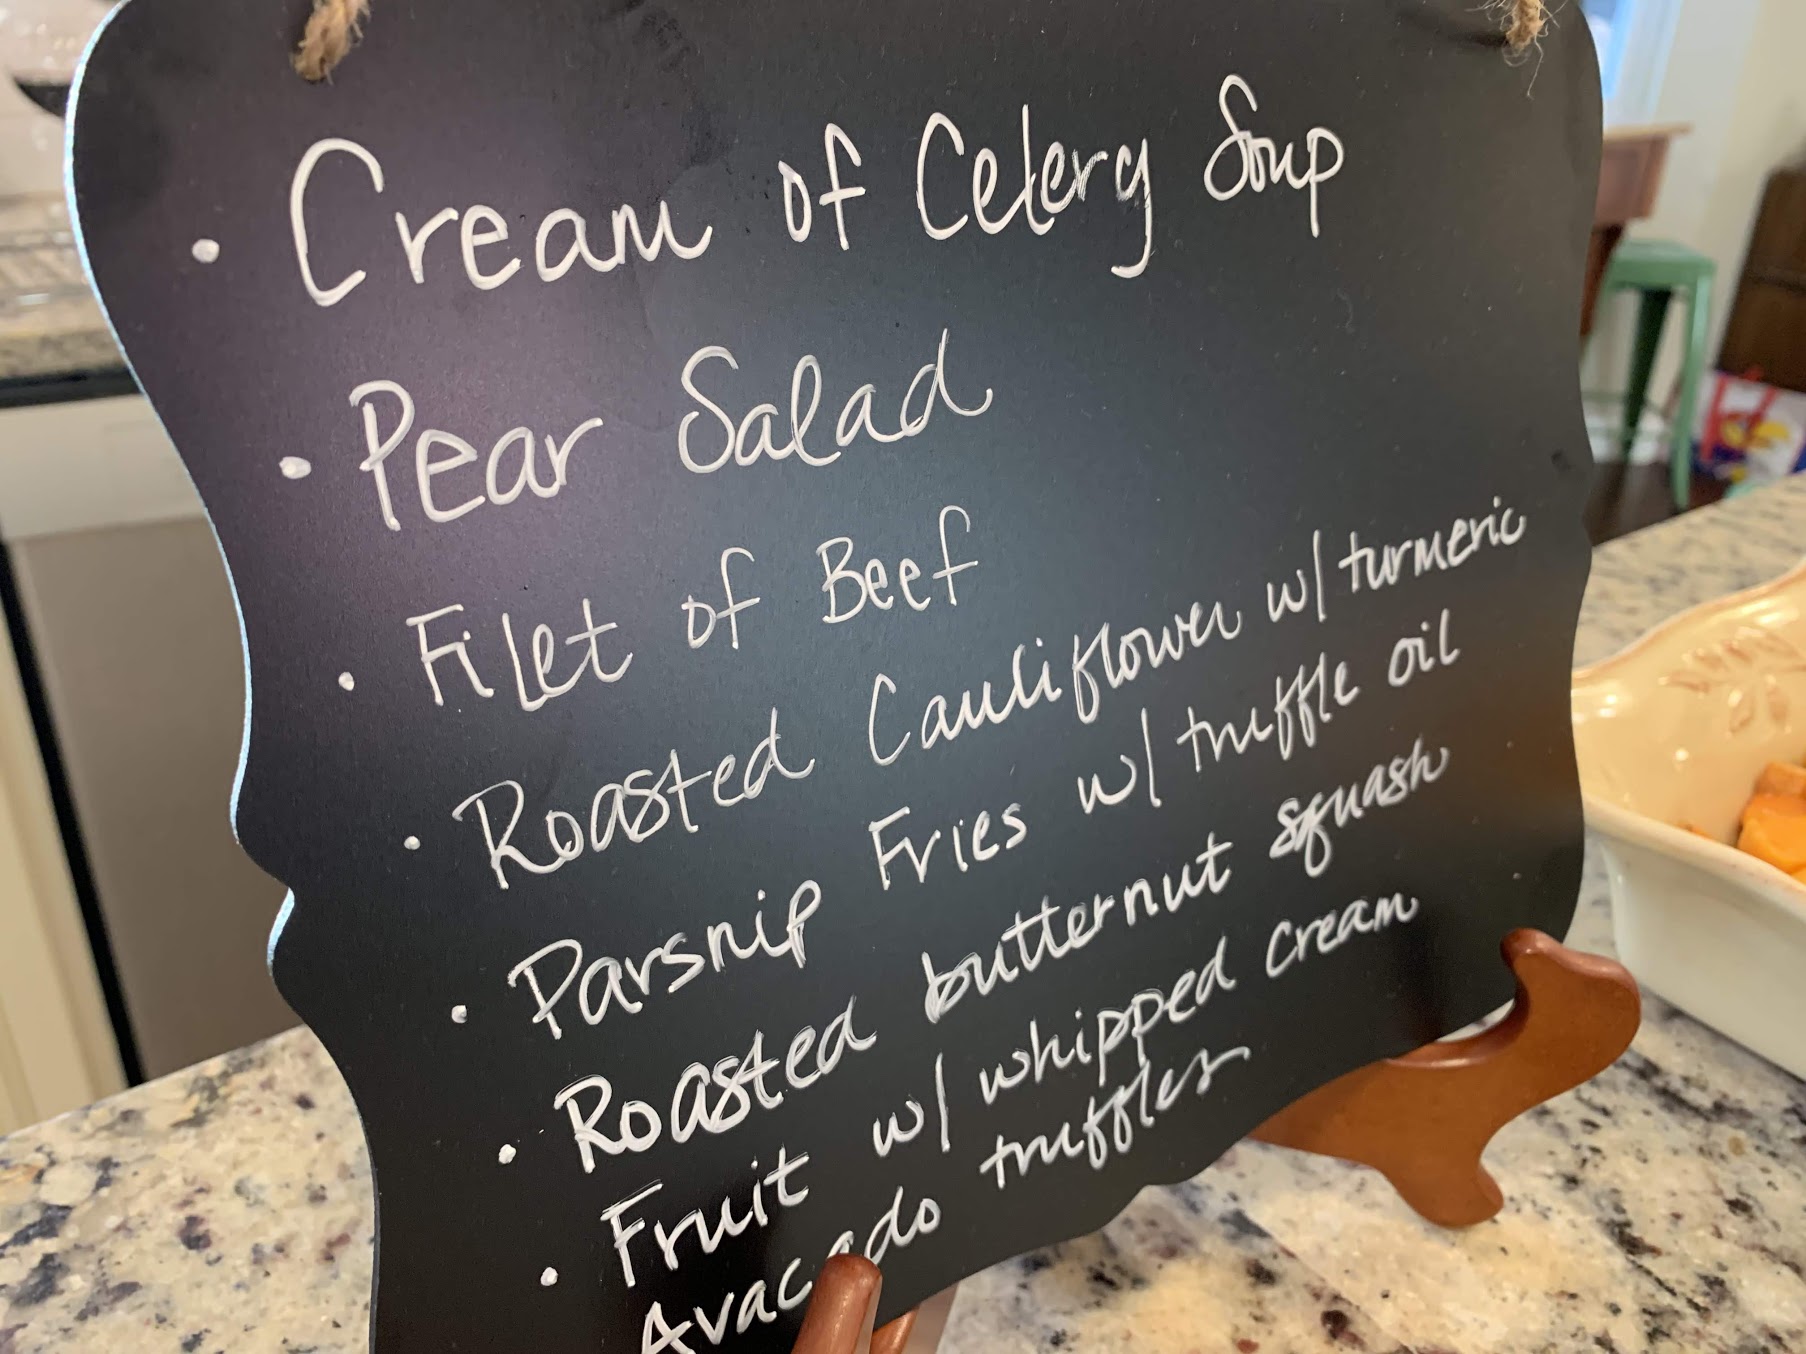 • Cream of Celery Soup
• Pear Salad
• Filet of Beef
• Roasted Cauliflower w/ turmeric
• Parsnip Fries w/ truffle oil
• Roasted butternut squash
• Fruit w/ whipped cream
Avacado truffles